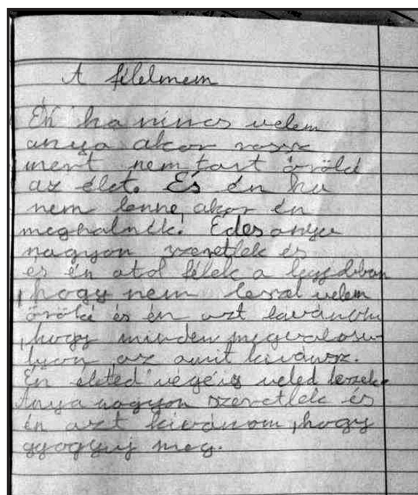 A félelmem
Én ha nincs velem
anya akor rossz
mert nem tart öröké
az élet. És én ha
nem lenne akor én
meghalnék! Édesanya
nagyon szeretlek és
és én atol félek a legjobban
,hogy nem leszel velem
öröké és én azt kivánom
,hogy minden megvalosu-
lyon az amit kivánsz.
Én életed végéig veled leszek.
Anya nagyon szeretlek és
én azt kivánom ,hogy
gyogyuj meg.